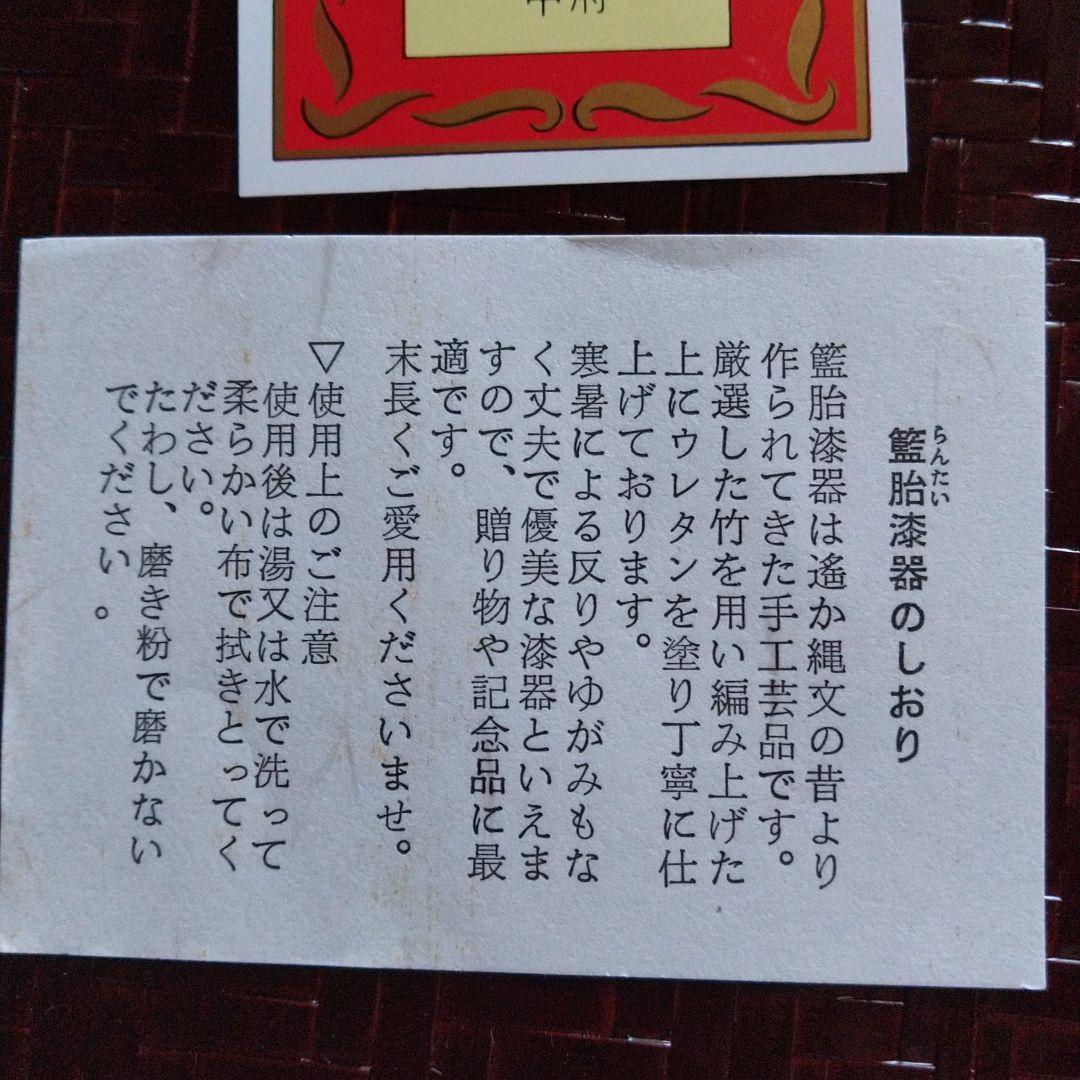 籃胎漆器のしおり
らんたい
籃胎漆器は遙か縄文の昔より
作られてきた手工芸品です。
厳選した竹を用い編み上げた
上にウレタンを塗り丁寧に仕
上げております。
寒暑による反りやゆがみもな
く丈夫で優美な漆器といえま
すので、贈り物や記念品に最
適です。
末長くご愛用くださいませ。
▽使用上のご注意
使用後は湯又は水で洗って
柔らかい布で拭きとってく
ださい。
たわし、磨き粉で磨かない
でください。